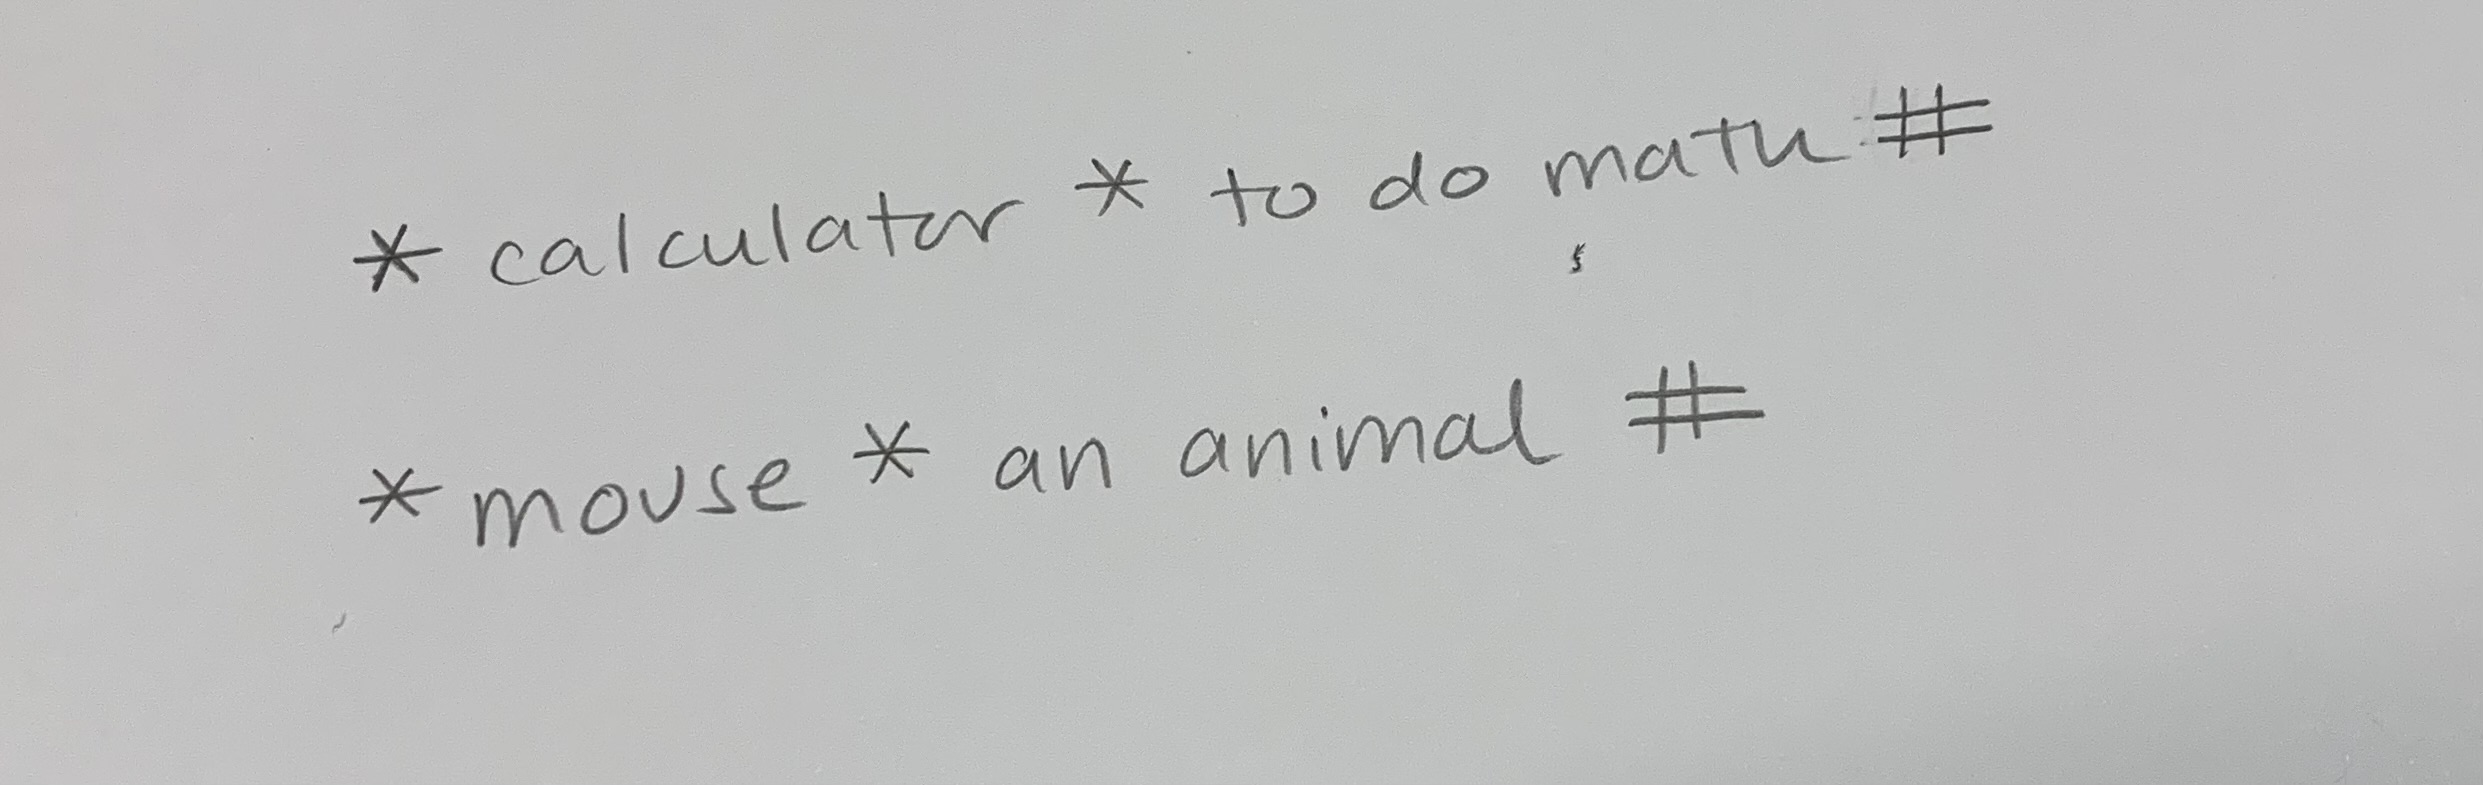 * calculator * to do math #
* mouse * an animal #